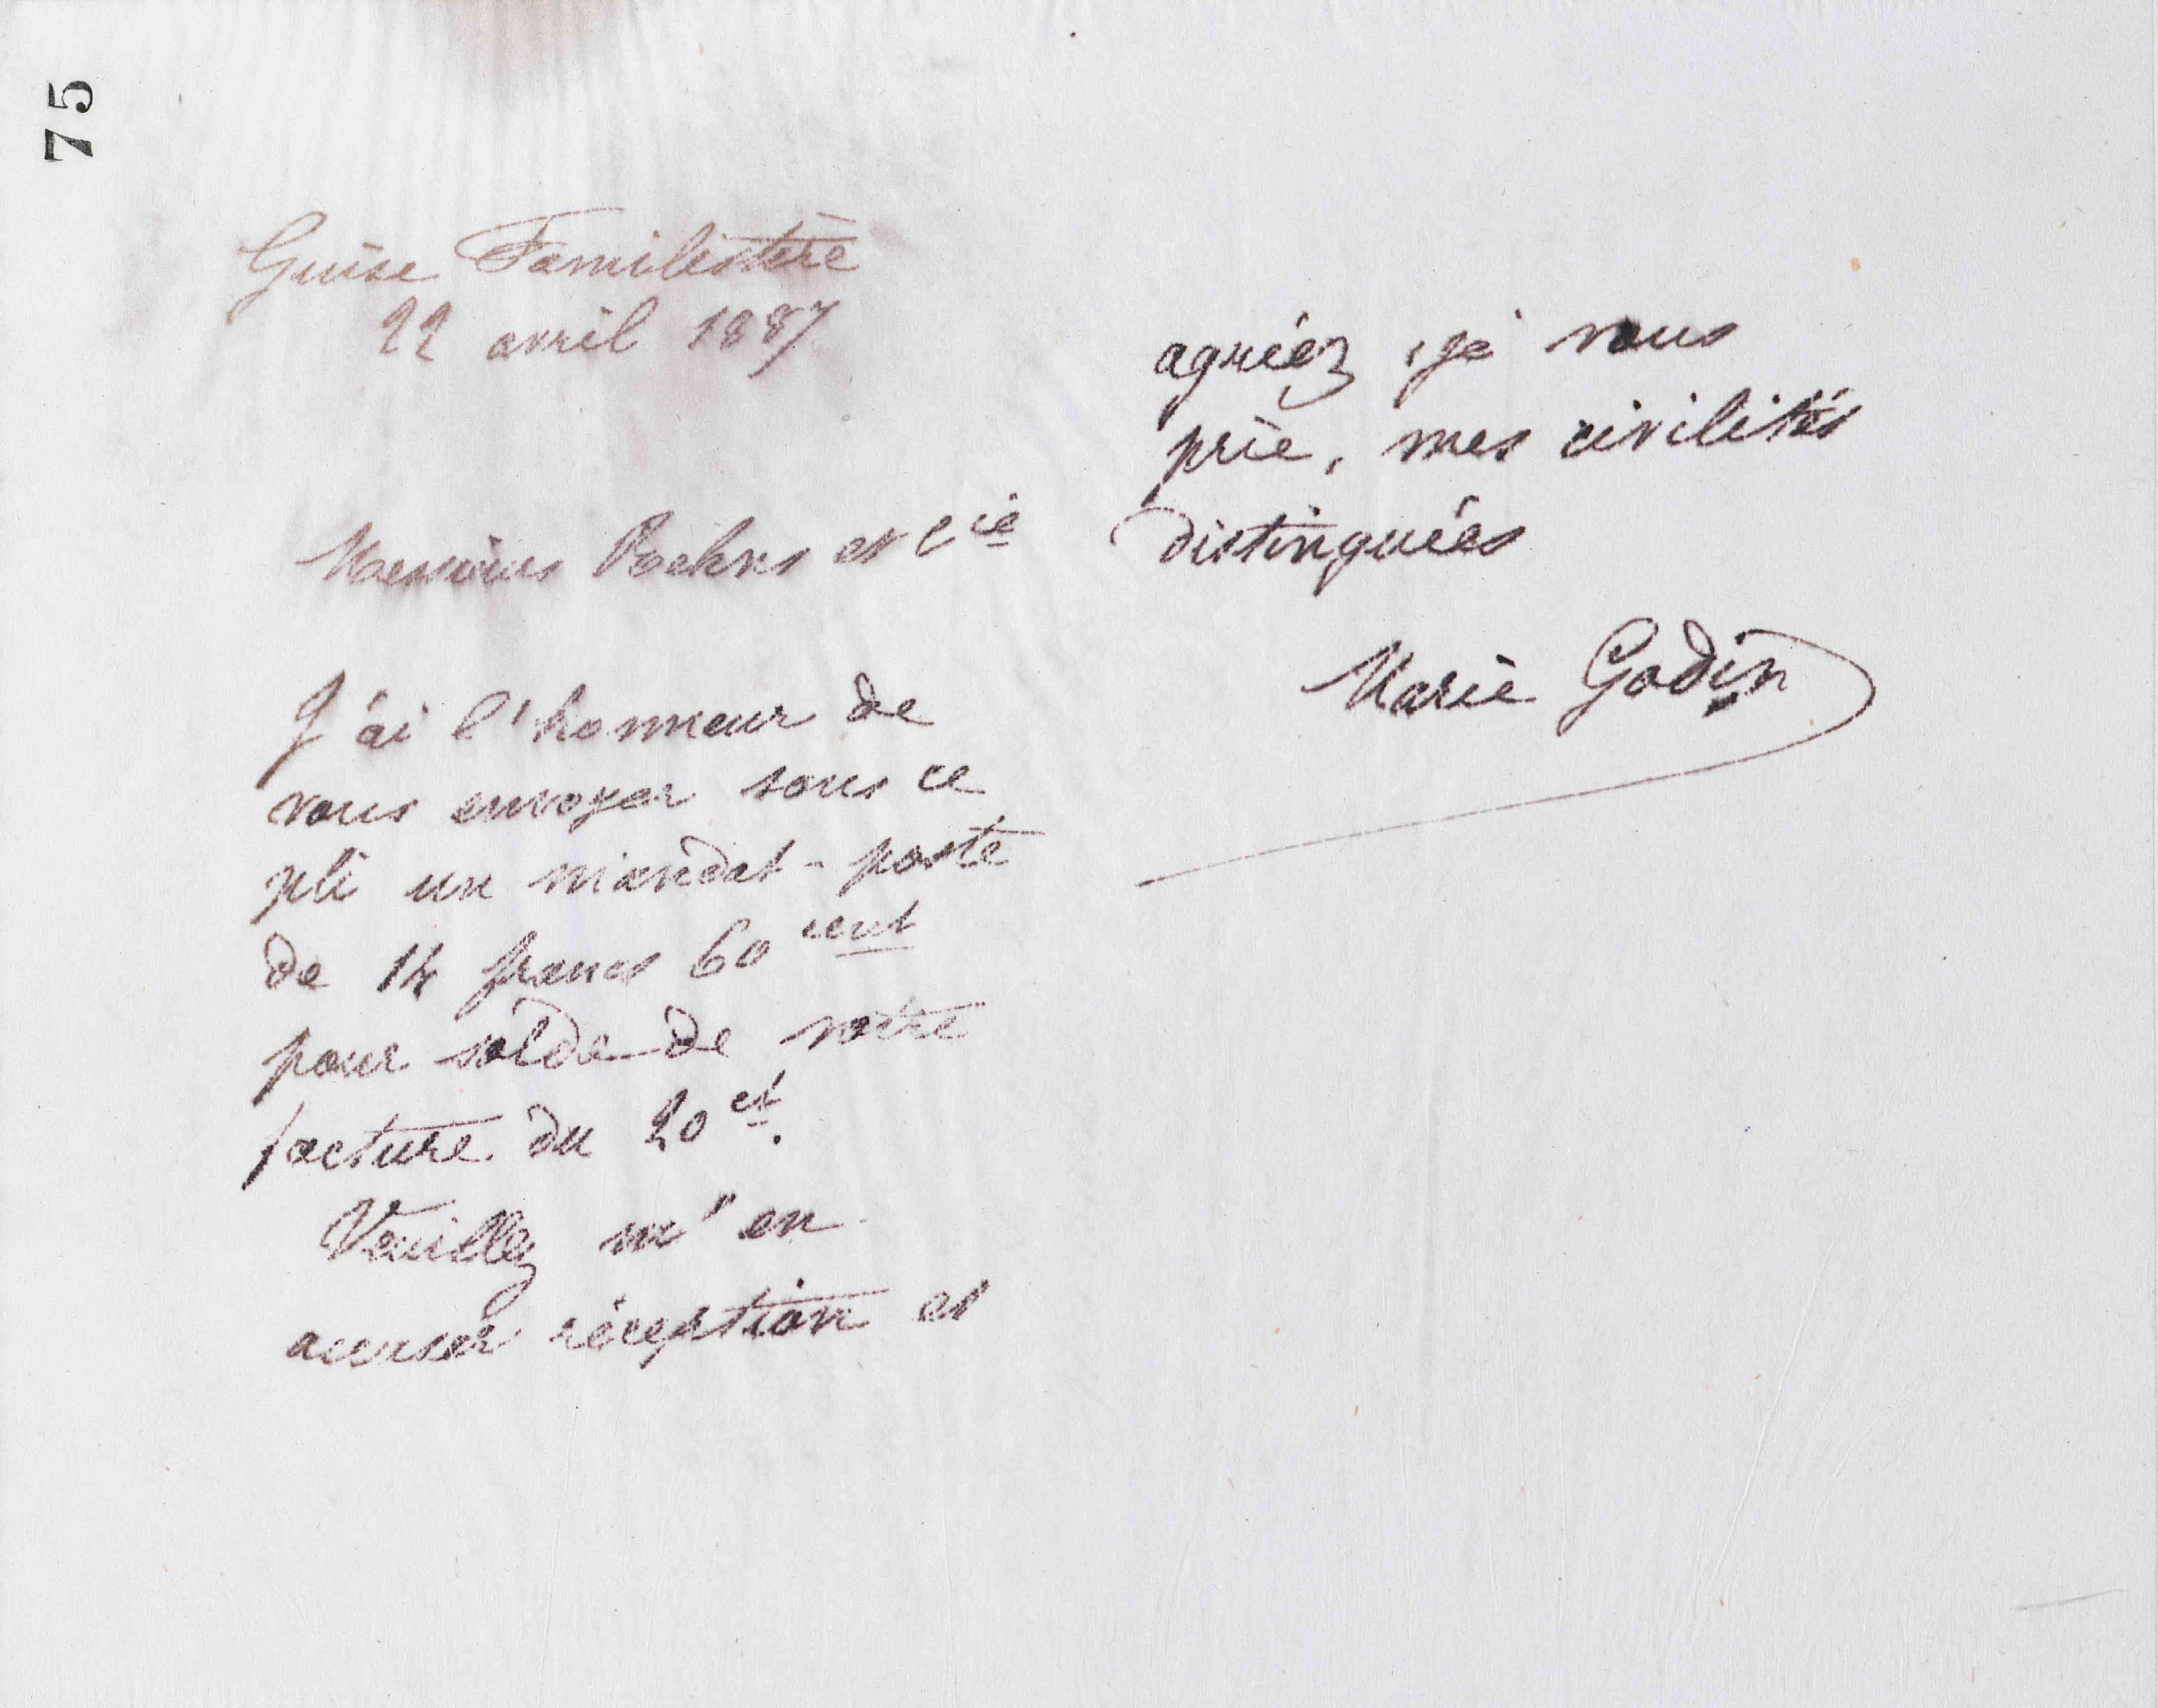 75
Guise Familistère
22 avril 1887
Messieurs et Cie
J'ai l'honneur de
vous envoyer sous ce
pli un mandat-poste
de 14 francs 60 cent
pour solde de votre
facture du 20 ct.
Veuillez m'en
accuser réception et
agréez, je vous
prie, mes civilités
distinguées
Marie Godin